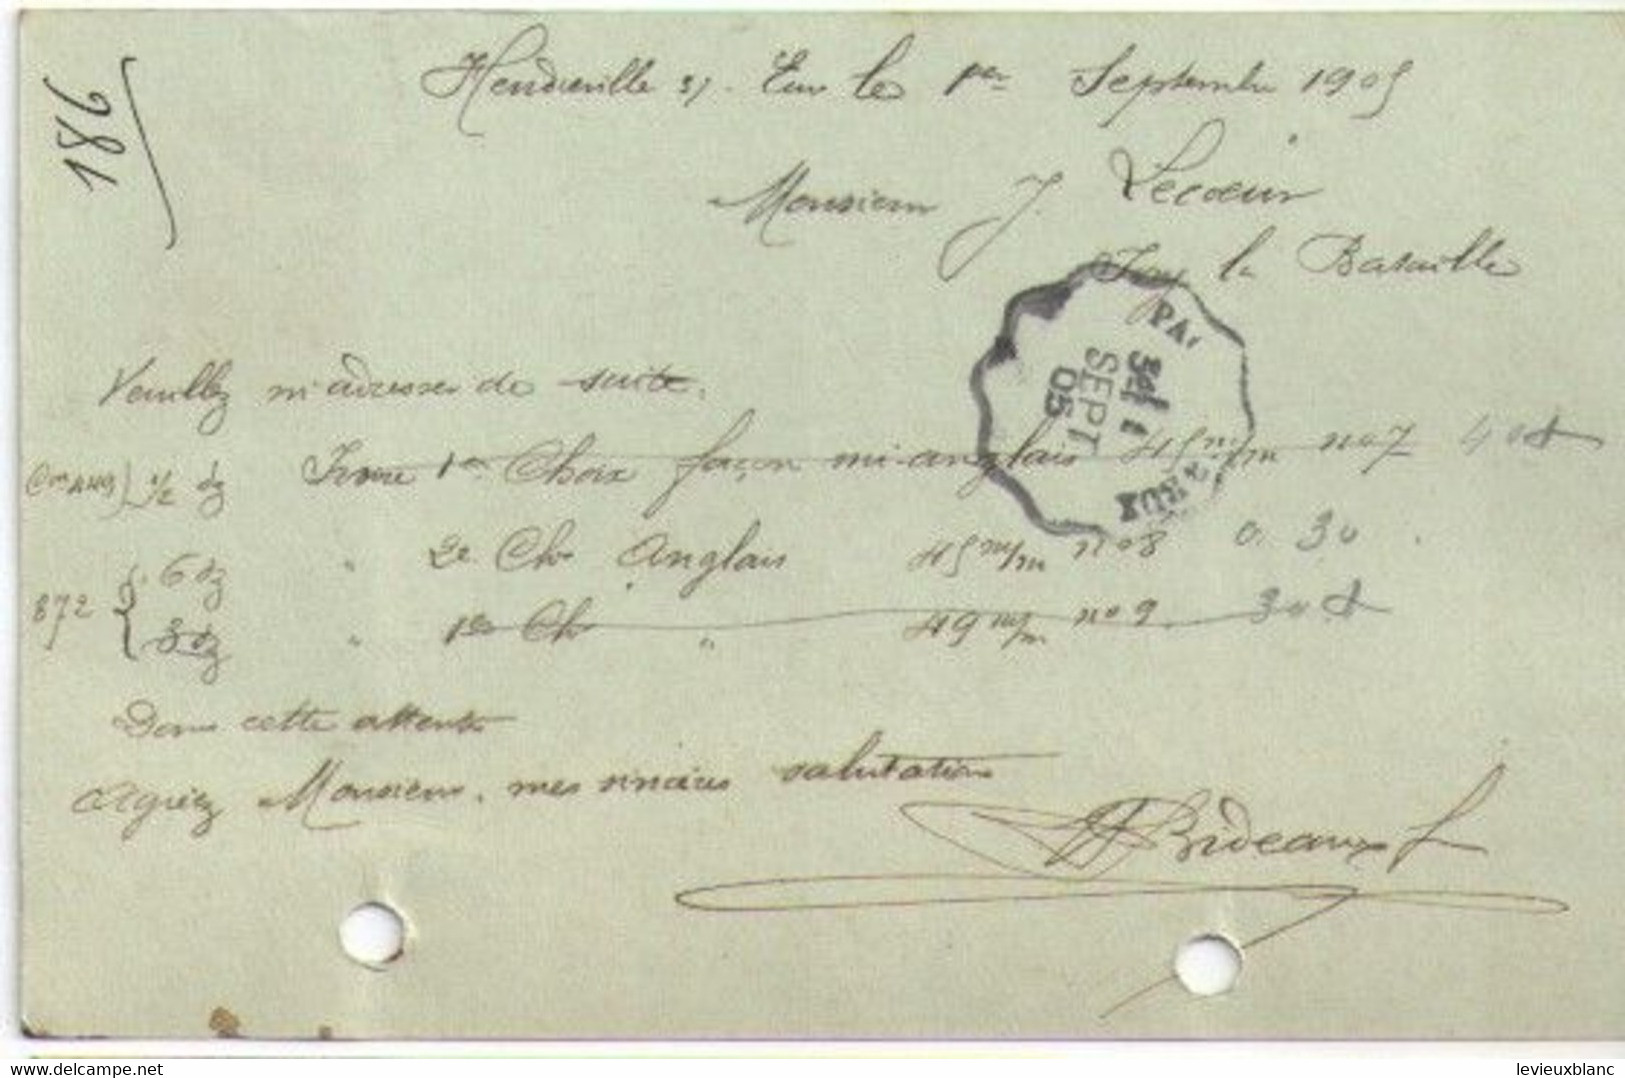 186
s/. Eure le 1er Septembre 1905
Monsieur J. Lecoeur
Ivry la Bataille
PA
3E / 1
SEPT
05
Veuillez m'adresser de suite.
1/2 dz Ivoire 1er Choix façon mi-anglais 45 m/m no 7 40
6 dz " 2e Ch Anglais 45 m/m no 8 0.30
872 { 3 dz " 1er Ch " 49 m/m no 9 30
Dans cette attente
Agréez Monsieur, mes sincères salutations
Bideaux
delcampe.net
levieuxblanc